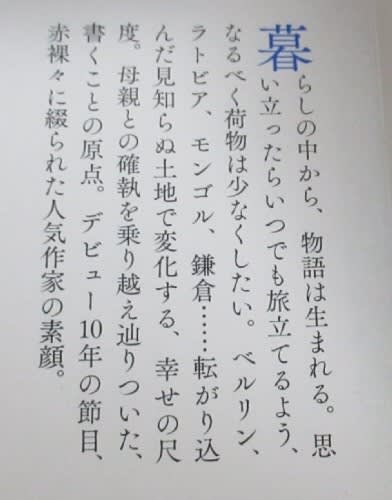 暮らしの中から、物語は生まれる。思
い立ったらいつでも旅立てるよう、
なるべく荷物は少なくしたい。ベルリン、
ラトビア、モンゴル、鎌倉……転がり込
んだ見知らぬ土地で変化する、幸せの尺
度。母親との確執を乗り越え辿りついた、
書くことの原点。デビュー10年の節目、
赤裸々に綴られた人気作家の素顔。